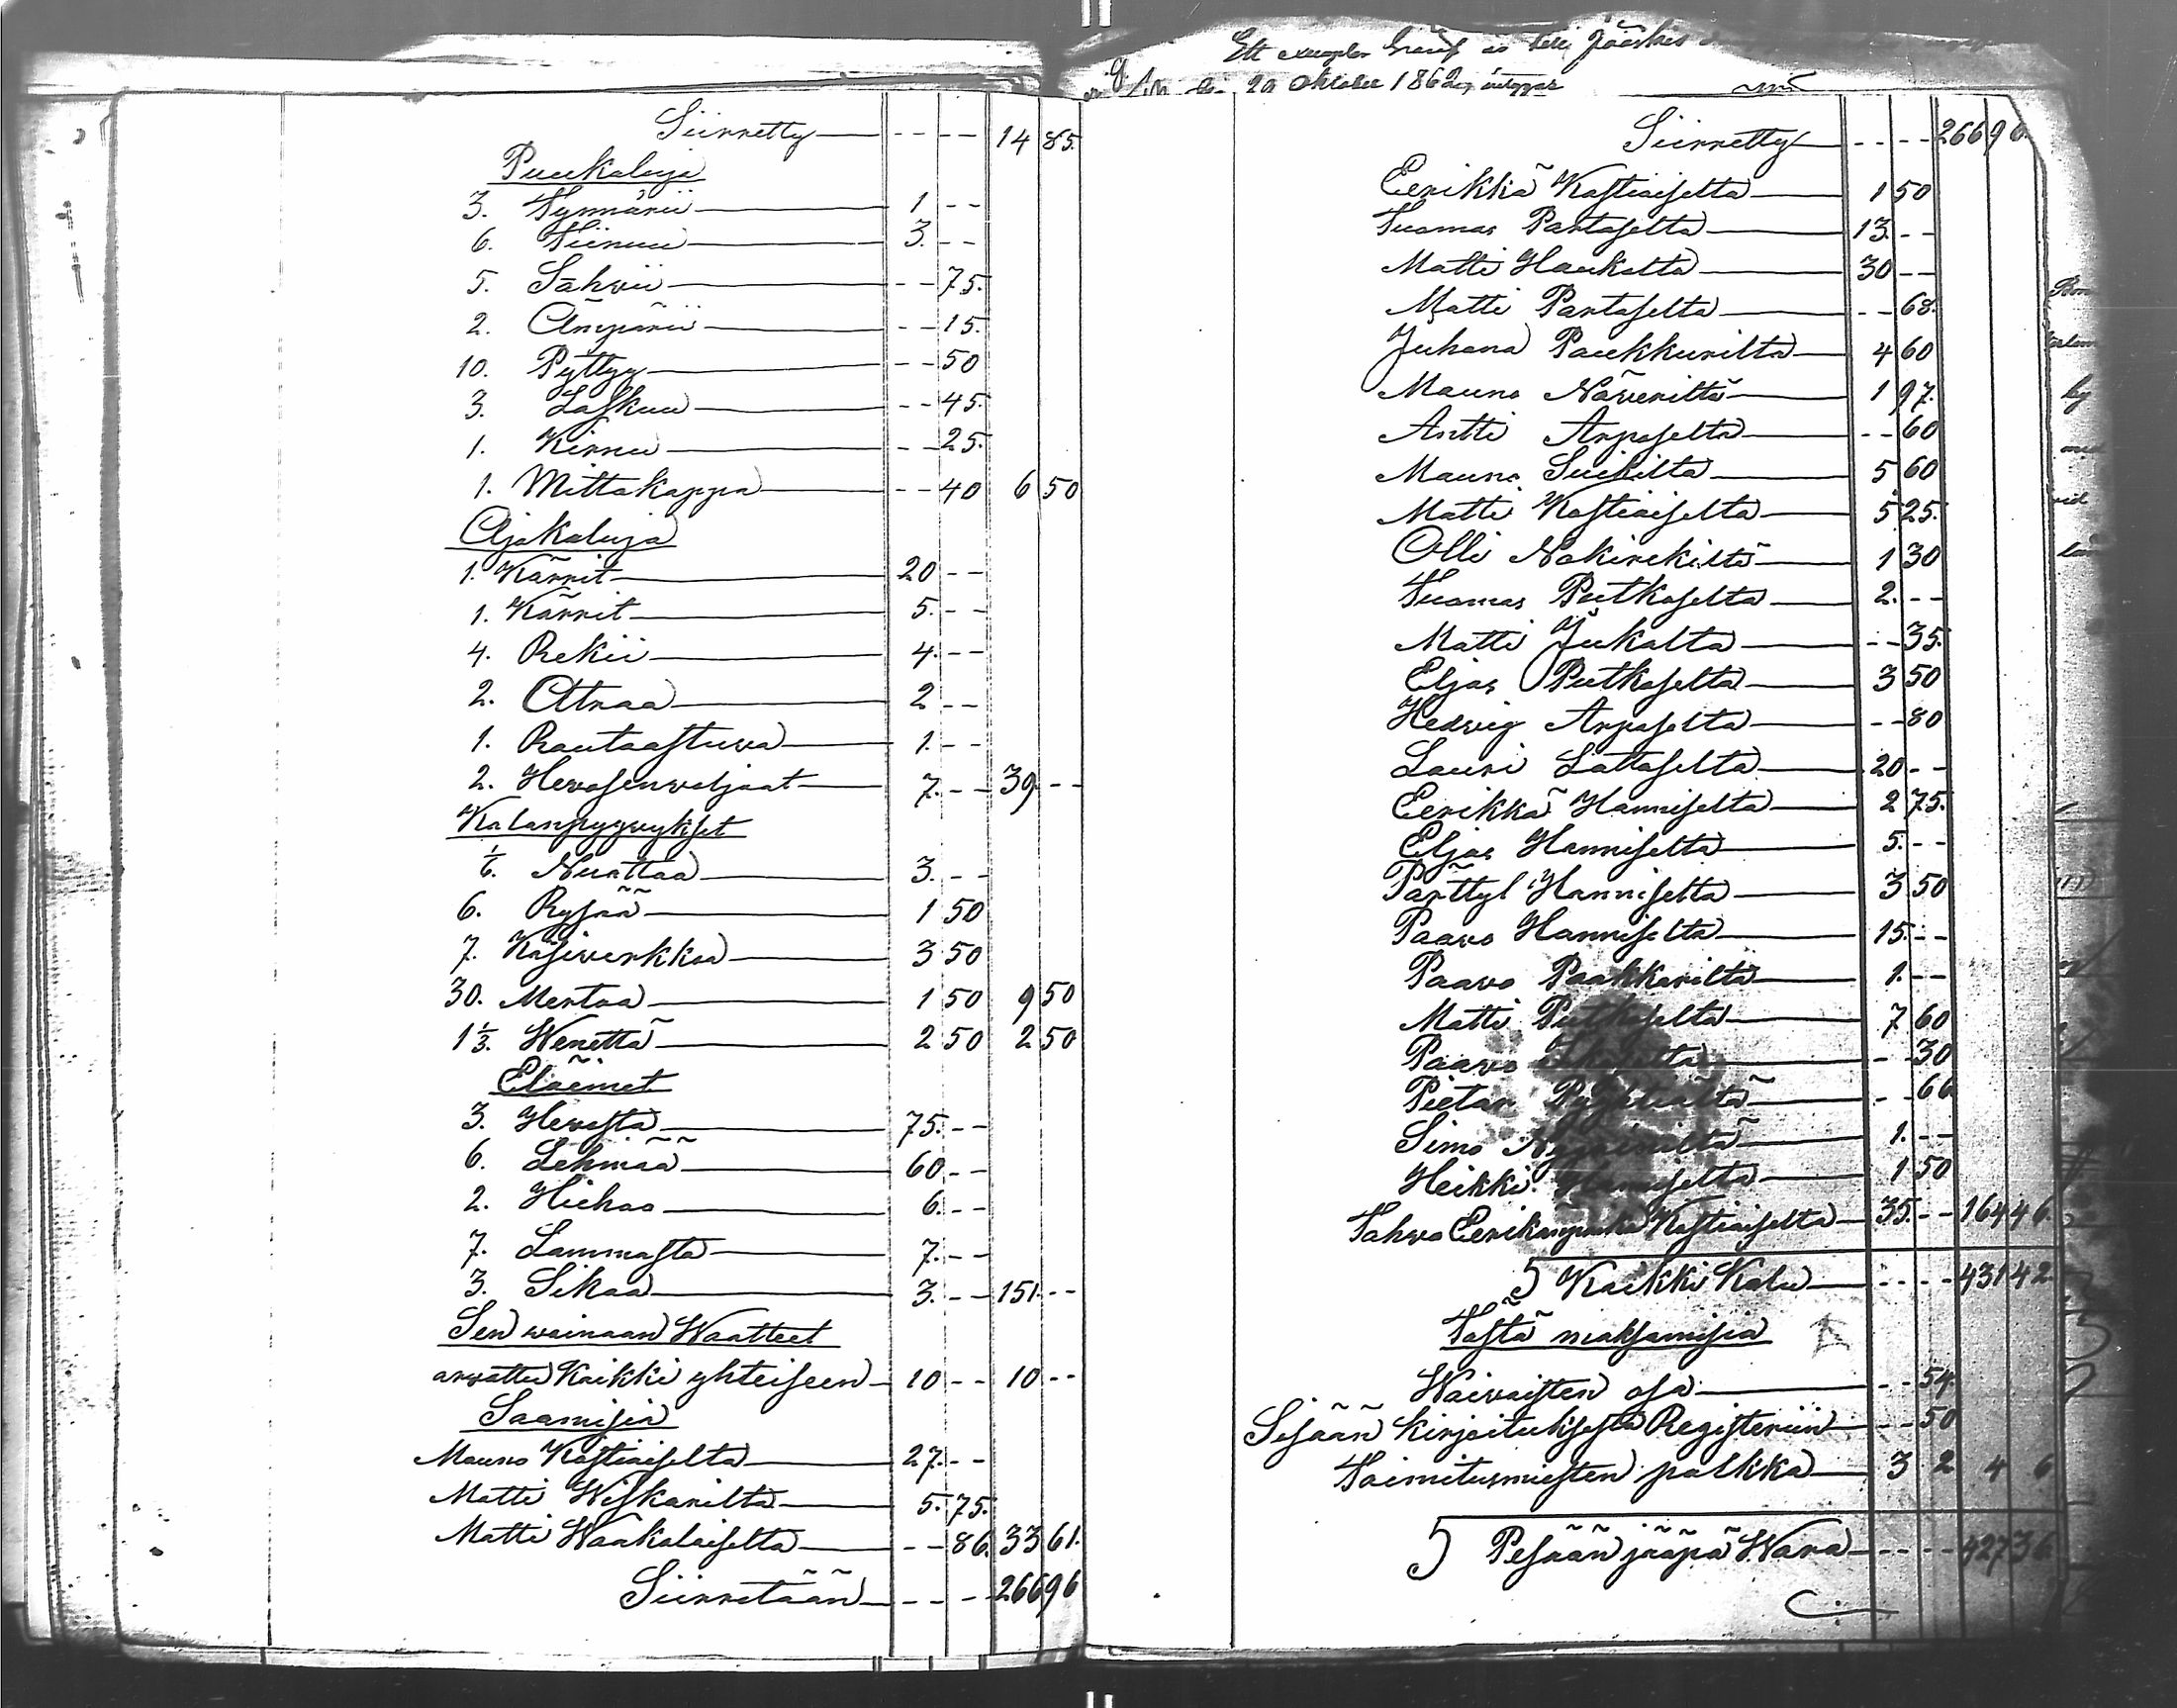 Siirretty — - - - - 14 85.
Puukaluja
3. Tynnärii — 1 - -
6. Tiinuu — 3. - -
5. Sahvii — - - 75.
2. Ämpärii — - - 15.
10. Pyttyy — - - 50
3. Laskuu — - - 45.
1. Kirnu — - - 25.
1. Mittakappa — - - 40 6 50
Ajokaluja
1. Kärrit — 20 - -
1. Kärrit — 5. - -
4. Rekii — 4. - -
2. Atraa — 2 - -
1. Rautaastuva — 1. - -
2. Hevosenvaljaat — 7. - - 39. - -
Kalanpyyvykset
1/6. Nuottaa — 3. - -
6. Rysää — 1 50
7. Käsiverkkoa — 3 50
30. Mertaa — 1 50 9 50
1 1/3. Wenettä — 2 50 2 50
Eläimet
3. Hevosta — 75. - -
6. Lehmää — 60 - -
2. Hiehoo — 6. - -
7. Lammasta — 7. - -
3. Sikaa — 3. - - 151. - -
Sen vainaan Waatteet
arvattu Kaikki yhteiseen — 10 - - 10 - -
Saamisia
Mauno Kostiaiselta — 27. - -
Matti Wiskarilta — 5. 75.
Matti Waakalaiselta — - - 86. 33 61.
Siirretään — - - - - 266 96
Ett exemplar häraf Jääskis
29 Oktober 1862,
Siirretty — - - - - 266 96.
Eerikkä Kostiaiselta — 1 50
Tuomas Partaselta — 13. - -
Matti Haukalta — 30 - -
Matti Partaselta — - - 68.
Juhana Paukkurilta — 4 60
Mauno Näveriltä — 1 97.
Antti Arpaselta — - - 60
Mauno Suikilta — 5 60
Matti Kostiaiselta — 5 25.
Olli Nokirekiltä — 1 30
Tuomas Putkaselta — 2. - -
Matti Jukalta — - - 35.
Eljas Putkaselta — 3 50
Hedvig Arpaselta — - - 80
Lauri Lattaselta — 20 - -
Eerikkä Hanniselta — 2 75.
Eljas Hanniselta — 5. - -
Parttyl Hanniselta — 3 50
Paavo Hanniselta — 15. - -
Paavo Paakkarilta — 1. - -
Matti Putkaselta — 7 60
Paavo — - - 30
Pietar — - - 66
Simo — 1. - -
Heikki Hanniselta — 1 50
Tahvo Eerikänpoika Kostiaiselta — 35. - - 164 46.
S Kaikki Kalu — - - - - 431 42.
Tästä maksamisia
Waivaisten osa — - - 54.
Sisään kirjoituksesta Registeriin — - - 50
Toimitusmiesten palkka — 3 2 4 6
S Pesään jääpä Wara — - - - - 427 36